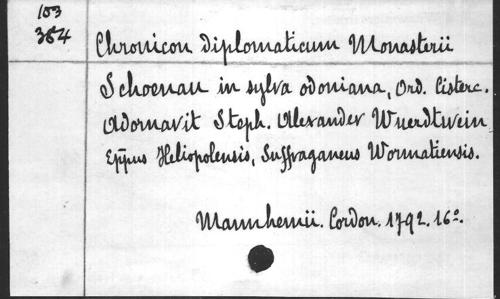 103
384
Chronicon diplomaticum Monasterii
Schoenau in sylva odoniana, Ord. Cisterc.
Adornavit Steph. Alexander Wuerdtwein
Epp̄us Heliopolensis, Suffraganeus Wormatiensis.
Mannhemii. Cordon. 1792. 16°.